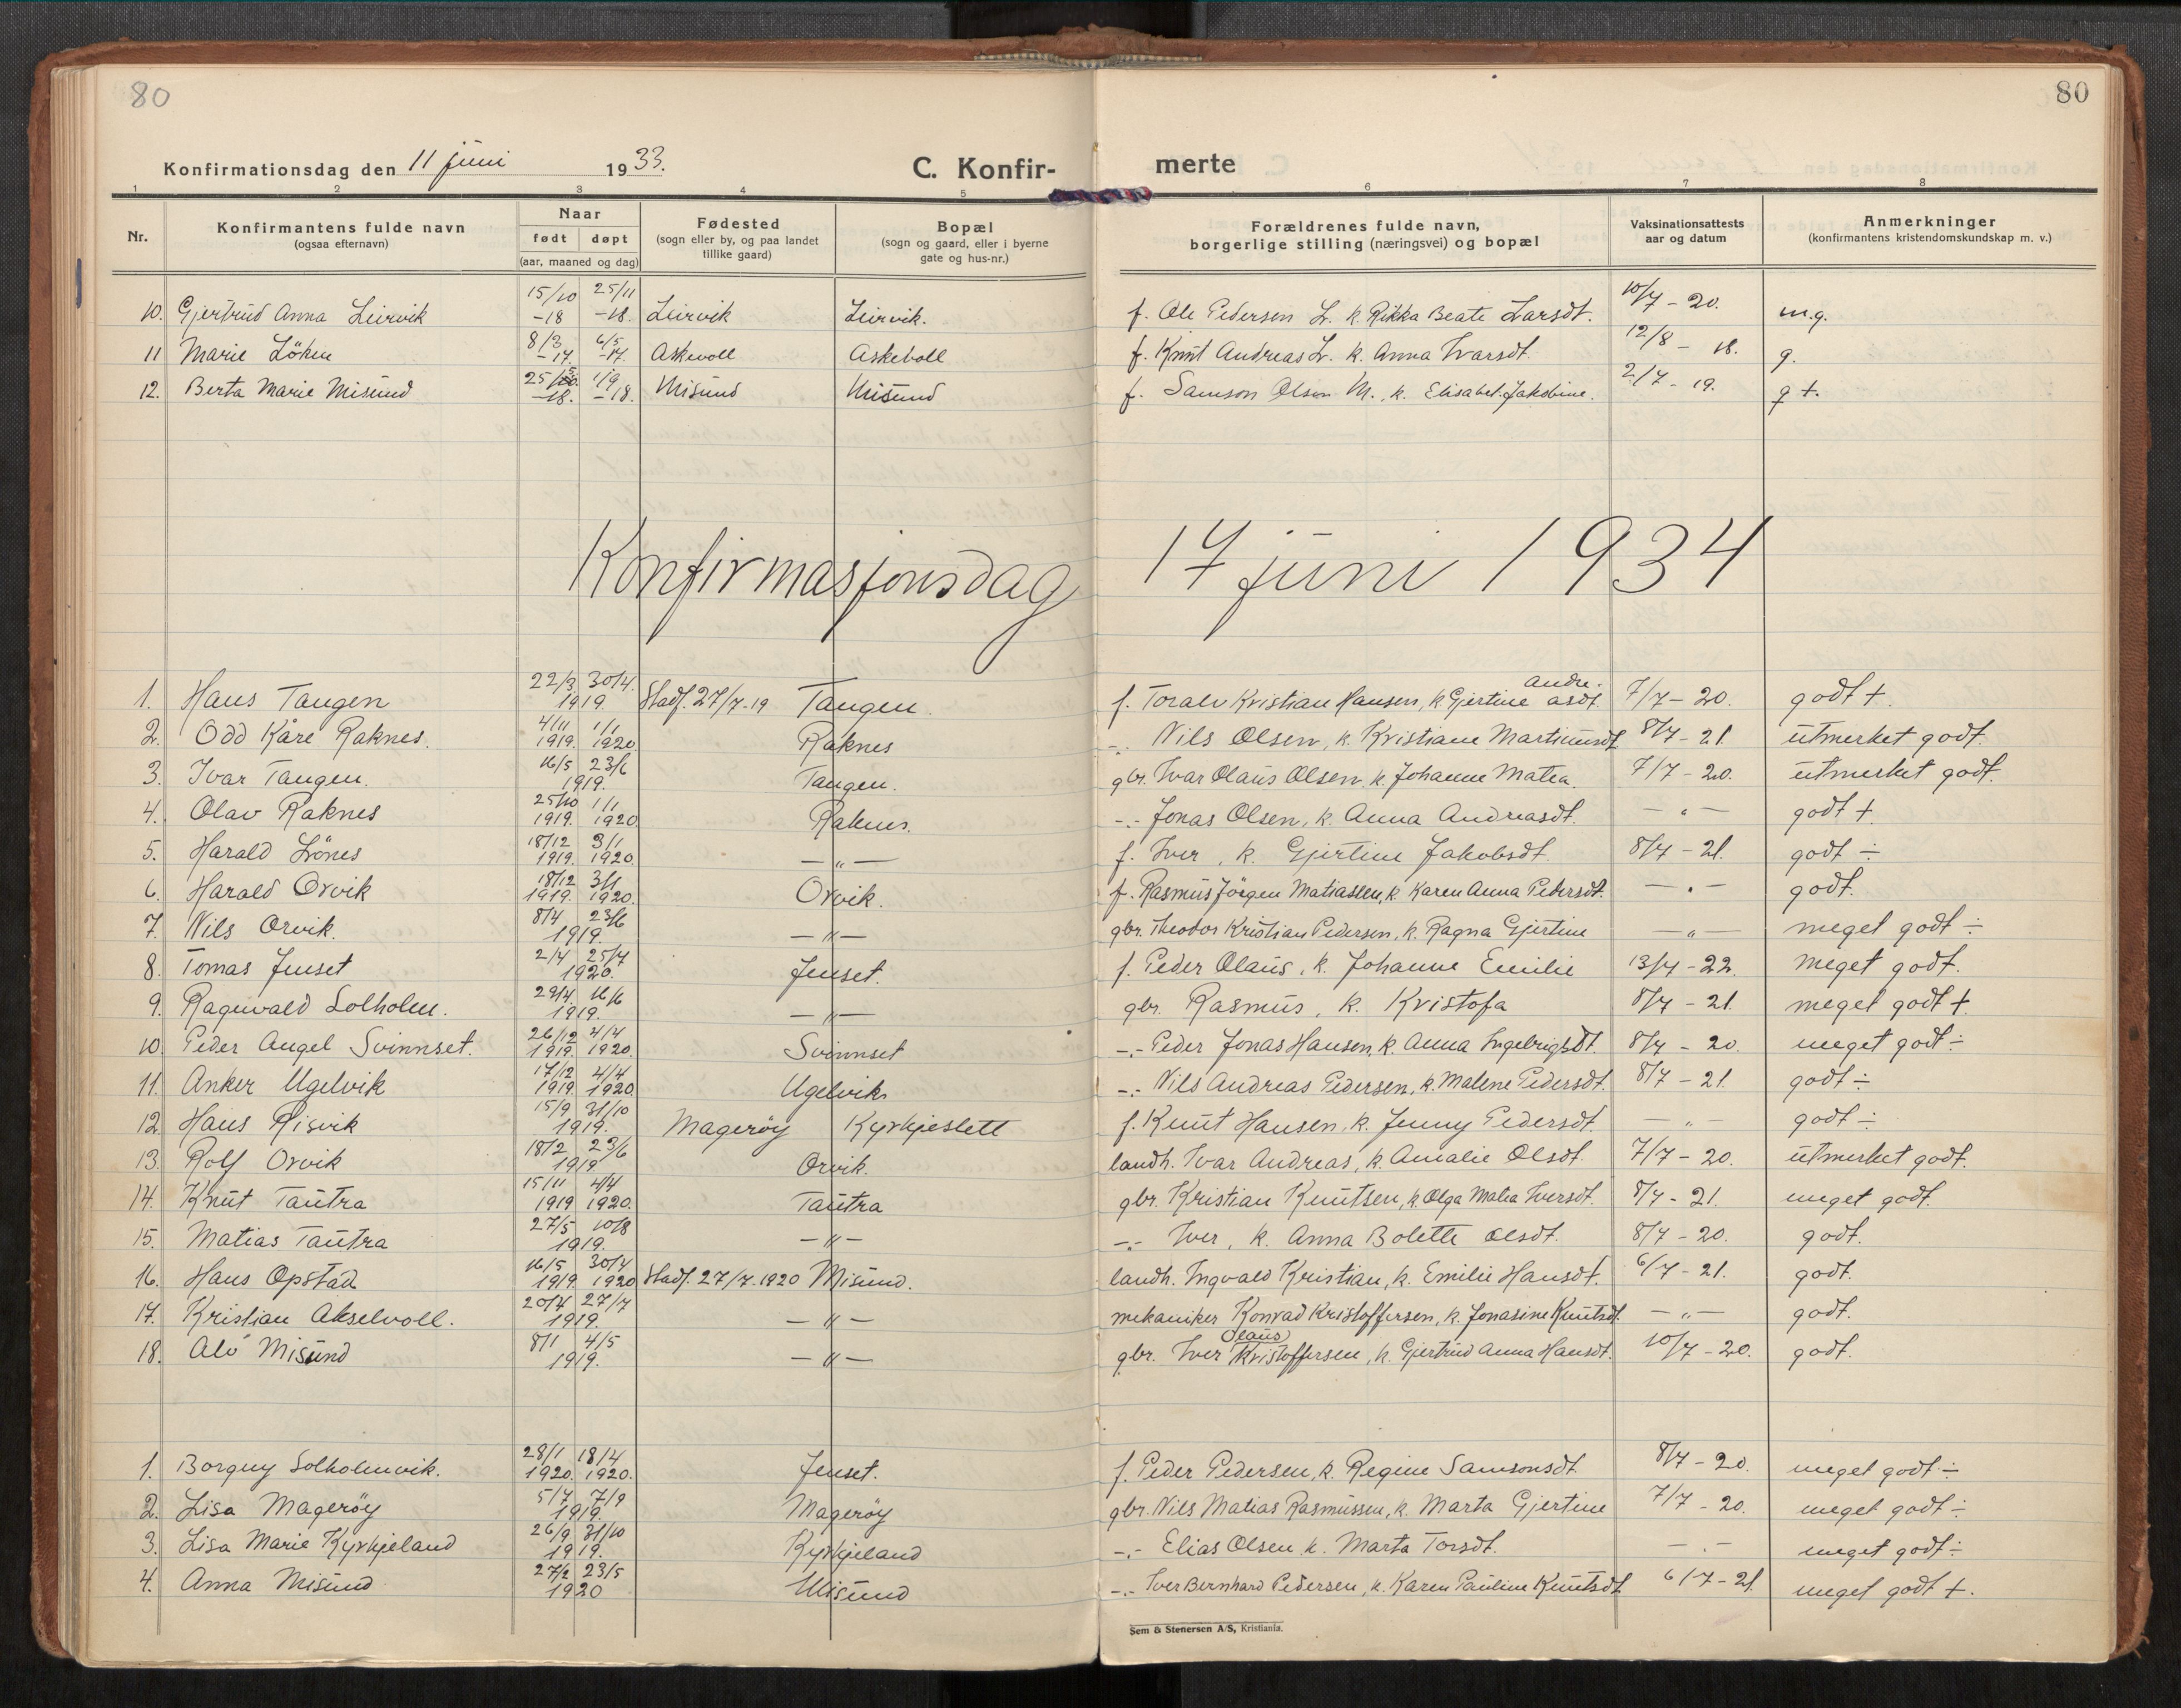 80
80
Konfirmationsdag den 11 juni 1933.
C. Konfir-
merte
1 2 3 4 5 6 7 8
Nr. Konfirmantens fulde navn (ogsaa efternavn) Naar født døpt (aar, maaned og dag) Fødested (sogn eller by, og paa landet tillike gaard) Bopæl (sogn og gaard, eller i byerne gate og hus-nr.) Forældrenes fulde navn, borgerlige stilling (næringsvei) og bopæl Vaksinationsattests aar og datum Anmerkninger (konfirmantens kristendomskundskap m. v.)
10. Gjertrud Anna Leirvik 15/10 -18 25/11 -18. Leirvik Leirvik. f. Ole Pedersen L. k. Rikka Beate Larsdt. 10/7 - 20. m.g.
11 Marie Löken 8/3 -17. 6/5 -17 Askevoll Askevoll f. Knut Andreas L. k. Anna Ivarsdt. 12/8 - 18. g.
12. Berta Marie Misund 25/ -18. 1/9 -18. Misund Misund f. Samson Olsen M., k. Elisabet Jakobine. 2/7 - 19. g +.
Konfirmasjonsdag 17 juni 1934
1. Hans Tangen 22/3 30/4. 1919. Stadf. 27/7-19 Tangen. f. Toralv Kristian Hansen, k. Gjertine Andreasdt. 7/7 - 20. godt +.
2. Odd Kåre Raknes. 4/11 1919. 1/1 1920 Raknes -.- Nils Olsen, k. Kristiane Martinusdt. 8/7 - 21. utmerket godt.
3. Ivar Tangen. 16/5 23/6 1919. Tangen. gbr. Ivar Olaus Olsen, k. Johanne Matea. 7/7 - 20. utmerket godt.
4. Olav Raknes 25/10 1919. 1/1 1920 Raknes. -.- Jonas Olsen, k. Anna Andreasdt. — " — godt +
5. Harald Lönes 18/12 1919. 3/1 1920. — " — f. Iver, k. Gjertine Jakobsdt. 8/7 - 21. godt ÷
6. Harald Orvik 18/12 1919. 3/1 1920. Orvik. f. Rasmus Jörgen Matiassen, k. Karen Anna Pedersdt. — " — godt.
7. Nils Orvik. 8/4 23/6 1919. — " — gbr. Theodor Kristian Pedersen, k. Ragna Gjertine — " — meget godt ÷
8. Tomas Jenset 2/4 25/7 1920. Jenset. f. Peder Olaus, k. Johanne Emilie 13/7 - 22. meget godt.
9. Ragnvald Solholm. 29/4. 16/6 1919. — " — gbr. Rasmus, k. Kristofa 8/7 - 21. meget godt +.
10. Peder Angel Svinnset. 26/12 1919. 4/4 1920. Svinnset -.- Peder Jonas Hansen, k. Anna Ingebrigtsdt. 8/7 - 20. meget godt ÷
11. Anker Ugelvik 17/12 1919. 4/4 1920. Ugelvik -.- Nils Andreas Pedersen, k. Malene Pedersdt. 8/7 - 21. godt ÷
12. Hans Risvik 15/9 31/10 1919. Mageröy Kyrkjeslett f. Knut Hansen, k. Jenny Pedersdt. — " — godt ÷
13. Rolf Orvik 18/2 23/6 1919 Orvik. landh. Ivar Andreas, k. Amalie Olsdt. 7/7 - 20. utmerket godt.
14. Knut Tautra 15/11 1919 4/4 1920. Tautra gbr. Kristian Knutsen, k. Olga Matea Iversdt. 8/7 - 21. meget godt.
15. Matias Tautra 27/5 10/8 1919. — " — -.- Iver, k. Anna Bolette Olsdt. 8/7 - 20. godt.
16. Hans Opstad 16/5 1919 30/4 1920 Stadf. 27/7.1920 Misund. landh. Ingvald Kristian, k. Emilie Hansdt. 6/7 - 21. godt.
17. Kristian Akselvoll. 20/4 27/7 1919. — " — mekaniker Konrad Kristoffersen, k. Jonasine Knutsdt. — " — godt.
18. Alv Misund 8/1 4/5 1919. — " — gbr. Iver Olaus Kristoffersen, k. Gjertrud Anna Hansdt. 10/7 - 20. godt.
1. Borguy Solholmvik. 28/1 1920. 18/4 1920. Jenset. f. Peder Pedersen, k. Regine Samsonsdt. 8/7 - 20. meget godt ÷
2. Lisa Mageröy 5/7 7/9 1919. Mageröy gbr. Nils Matias Rasmussen, k. Marta Gjertine 7/7 - 20. meget godt ÷
3. Lisa Marie Kyrkjeland 26/9 31/10 1919. Kyrkjeland -.- Elias Olsen, k. Marta Torsdt. — . — meget godt ÷
4. Anna Misund 27/2 23/5 1920 Misund -.- Iver Bernhard Pedersen, k. Karen Pauline Knutsdt. 6/7 - 21. meget godt +.
Sem & Stenersen A/S, Kristiania.